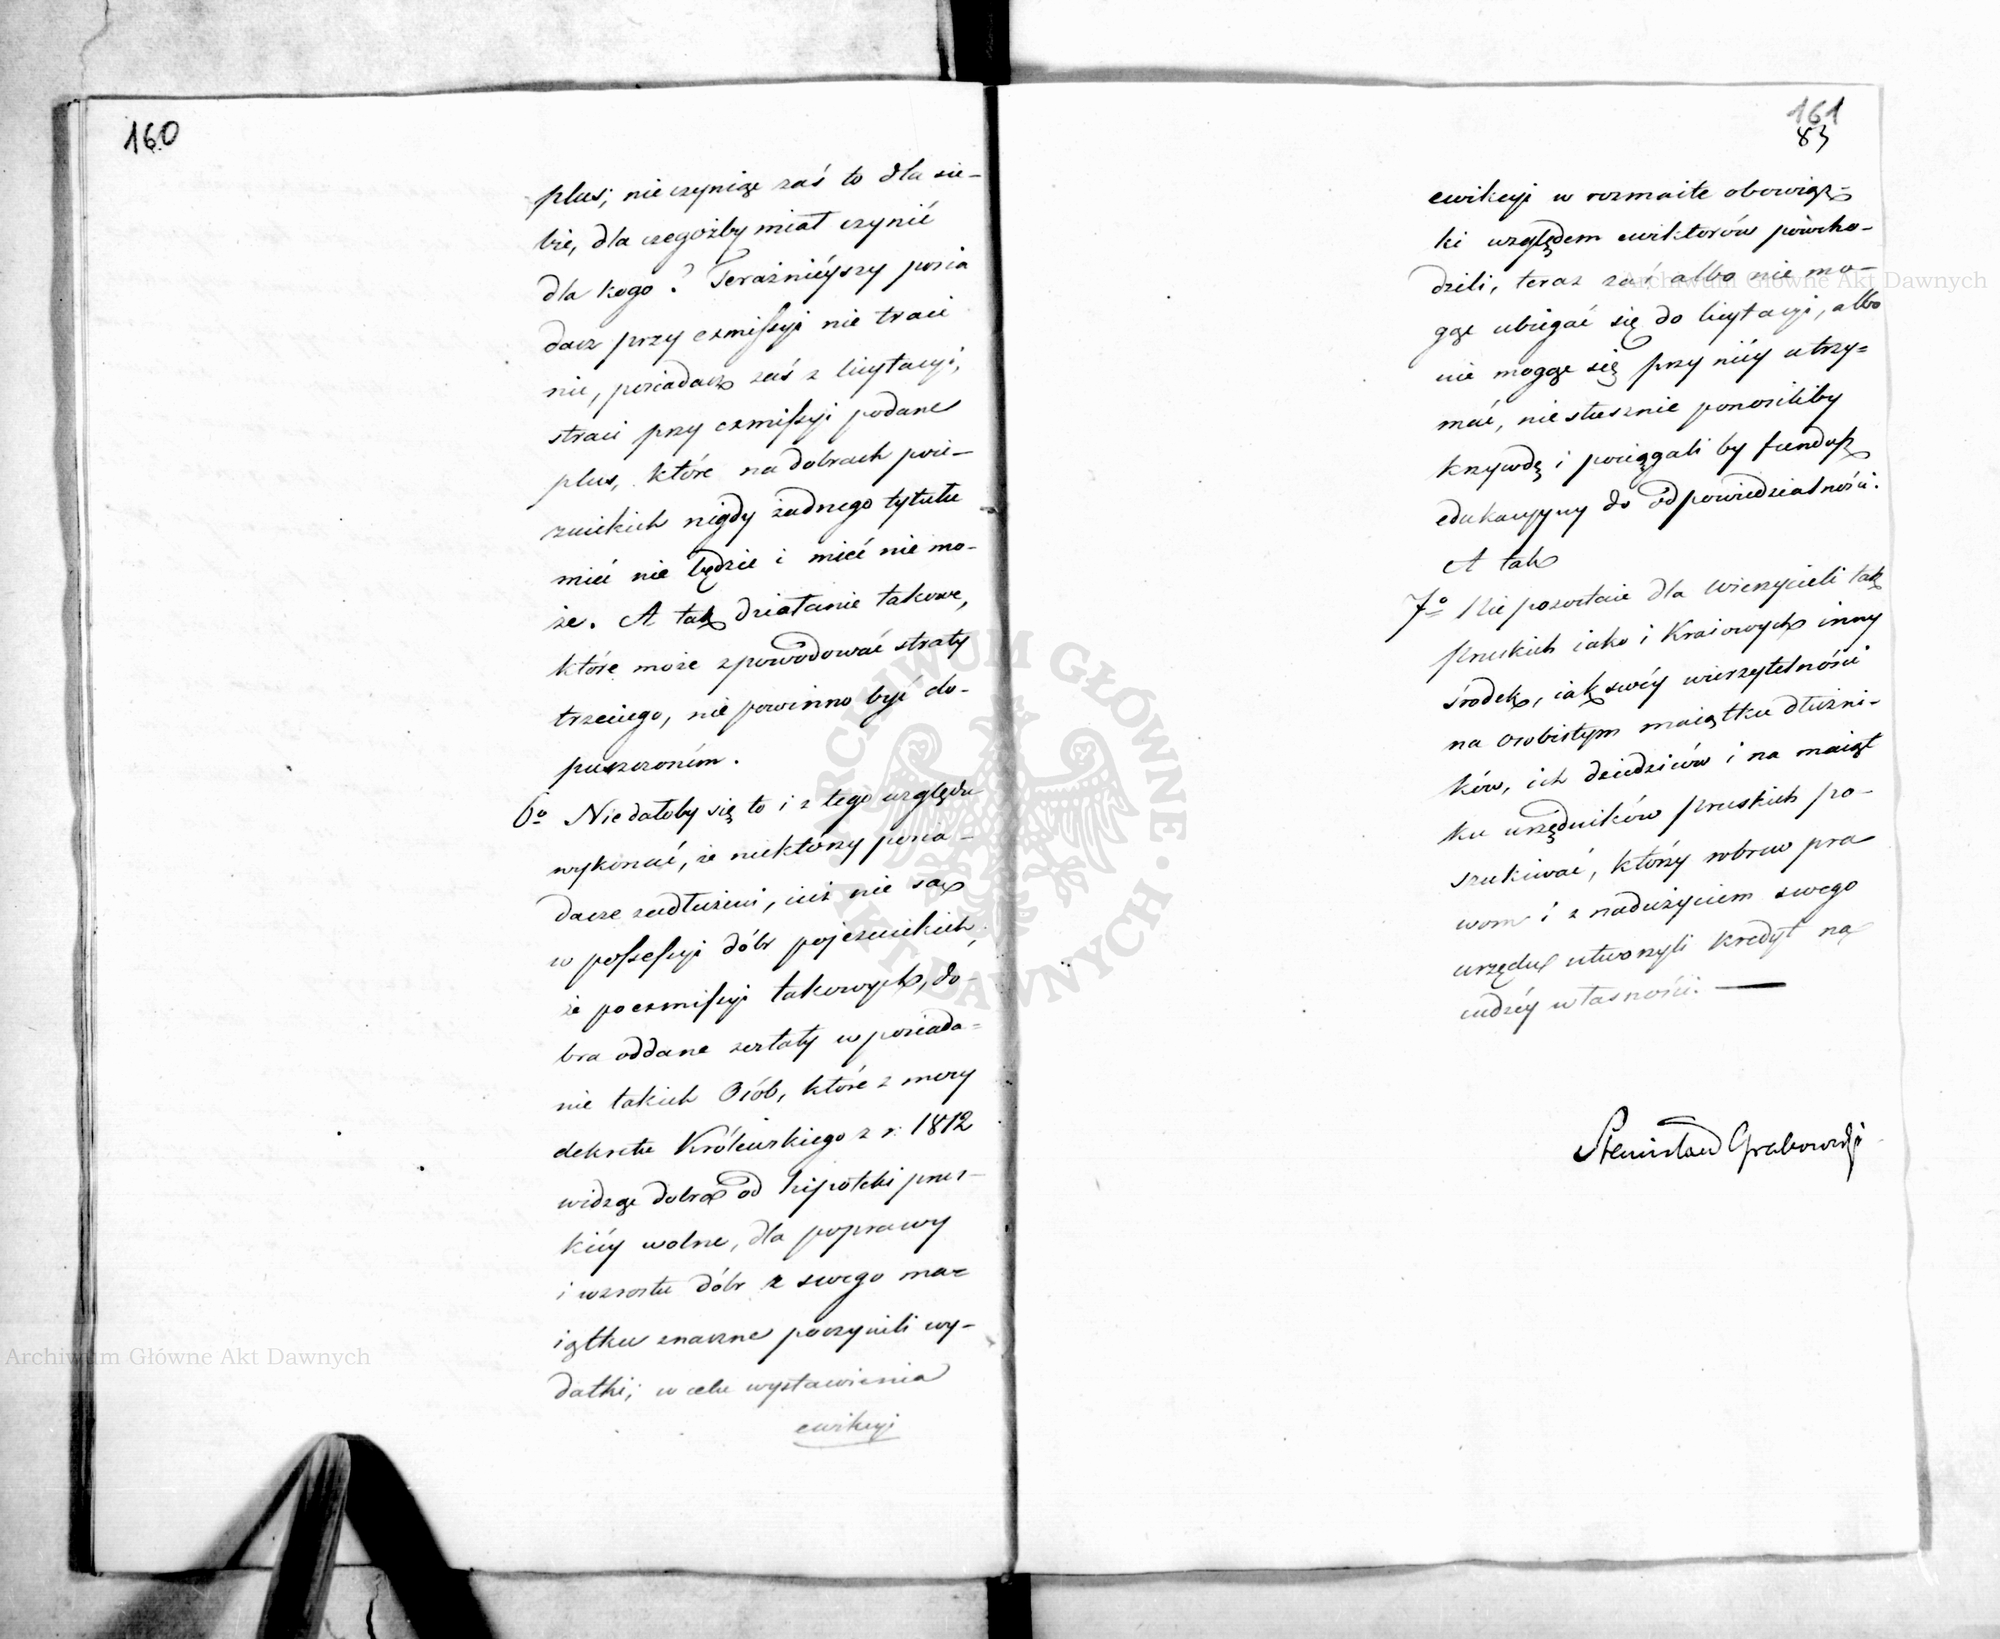 160
plus; nie czyniąc zaś to dla sie-
bie, dla czegożby miał czynić
dla kogo? Teraźnieyszy posia
dacz przy exmissyi nie traci
nic, posiadacz zaś z licytacyi,
straci przy exmissyi podane
plus, które na dobrach poie-
zuickich nigdy żadnego tytułu
mieć nie będzie i mieć nie mo-
że. A tak działanie takowe,
które może spowodować straty
trzeciego, nie powinno być do-
puszczoném.
6o Nie dałoby się to i z tego względu
wykonać, że niektórzy posia-
dacze zadłużeni, iuż nie są
w possessyi dóbr pojezuickich,
że po exmissyi takowych, do-
bra oddane zostały w posiada=
nie takich Osób, które z mocy
dekretu Królewskiego z r. 1812
widząc dobra od hipoteki prus-
kiéy wolne, dla poprawy
i wzrostu dóbr z swego ma=
iątku znaczne poczynili wy-
datki; w celu wystawienia
ewikcyi
161
83
ewikcyi w rozmaite obowiąz-
ki względem ewiktorów powcho-
dzili, teraz zaś albo nie mo-
gąc ubiegać się do licytacyi, albo
nie mogąc się przy niéy utrzy=
mać, niesłusznie ponosiliby
krzywdę i pociągali by fundusz
edukacyyny do odpowiedzialności.
A tak
7o Nie pozostaie dla wierzycieli tak
pruskich iako i Kraiowych inny
środek, iak swéy wierzytelności
na osobistym maiątku dłużni-
ków, ich dziedziców i na maiąt
ku urzędników pruskich po-
szukiwać, którzy wbrew pra
wom i z nadużyciem swego
urzędu utworzyli kredyt na
cudzéy własności.
Stanisław Grabowski
Archiwum Główne Akt Dawnych
Archiwum Główne Akt Dawnych
ARCHIWUM GŁÓWNE AKT DAWNYCH